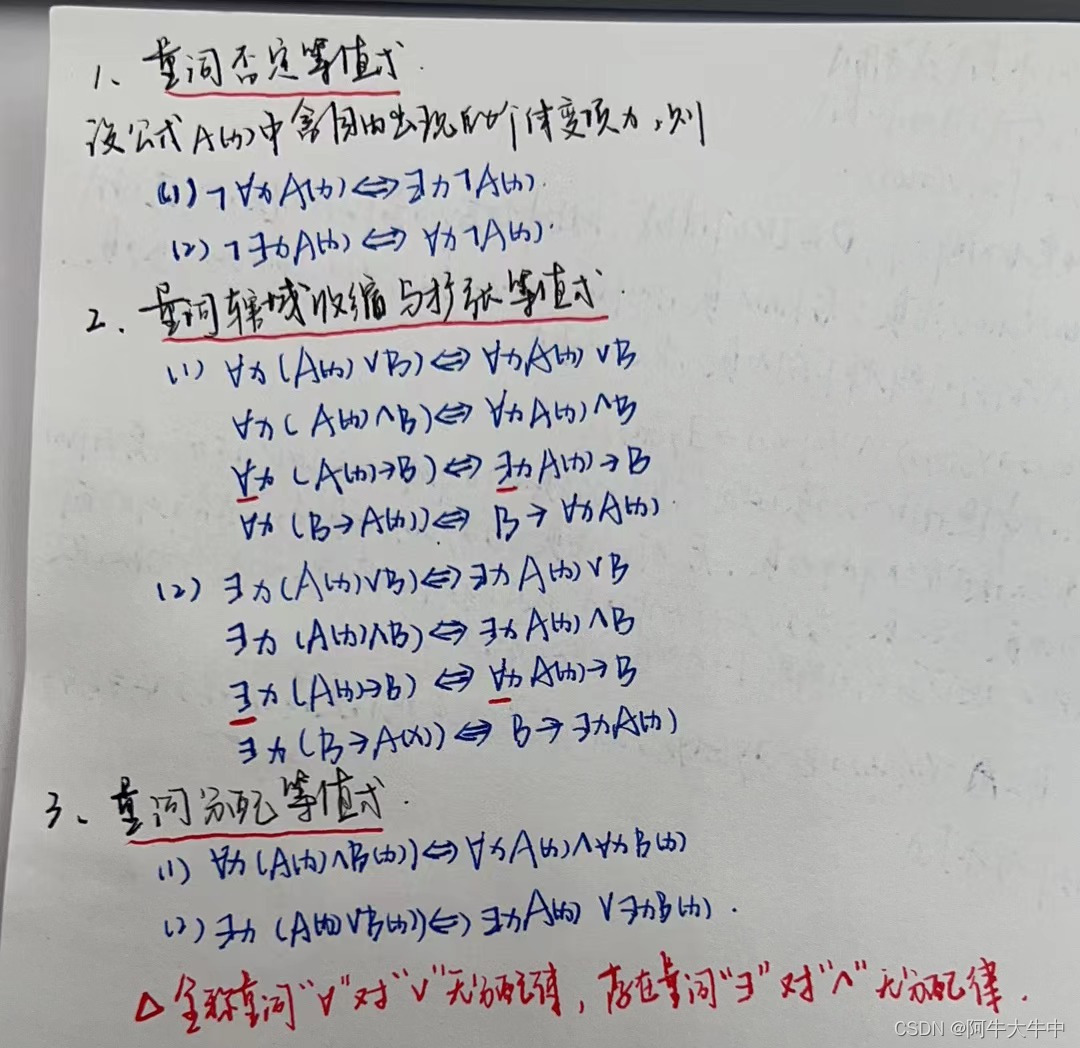 1、量词否定等值式.
设公式A(x)中含自由出现的个体变项x,则
(1)¬∀xA(x)⇔∃x¬A(x).
(2)¬∃xA(x)⇔∀x¬A(x).
2、量词辖域收缩与扩张等值式.
(1) ∀x(A(x)∨B)⇔∀xA(x)∨B
∀x(A(x)∧B)⇔∀xA(x)∧B
∀x(A(x)→B)⇔∃xA(x)→B
∀x(B→A(x))⇔B→∀xA(x)
(2) ∃x(A(x)∨B)⇔∃xA(x)∨B
∃x(A(x)∧B)⇔∃xA(x)∧B
∃x(A(x)→B)⇔∀xA(x)→B
∃x(B→A(x))⇔B→∃xA(x)
3、量词分配等值式.
(1) ∀x(A(x)∧B(x))⇔∀xA(x)∧∀xB(x)
(2) ∃x(A(x)∨B(x))⇔∃xA(x)∨∃xB(x).
△全称量词"∀"对"∨"无分配律,存在量词"∃"对"∧"无分配律.
CSDN @阿牛大牛中